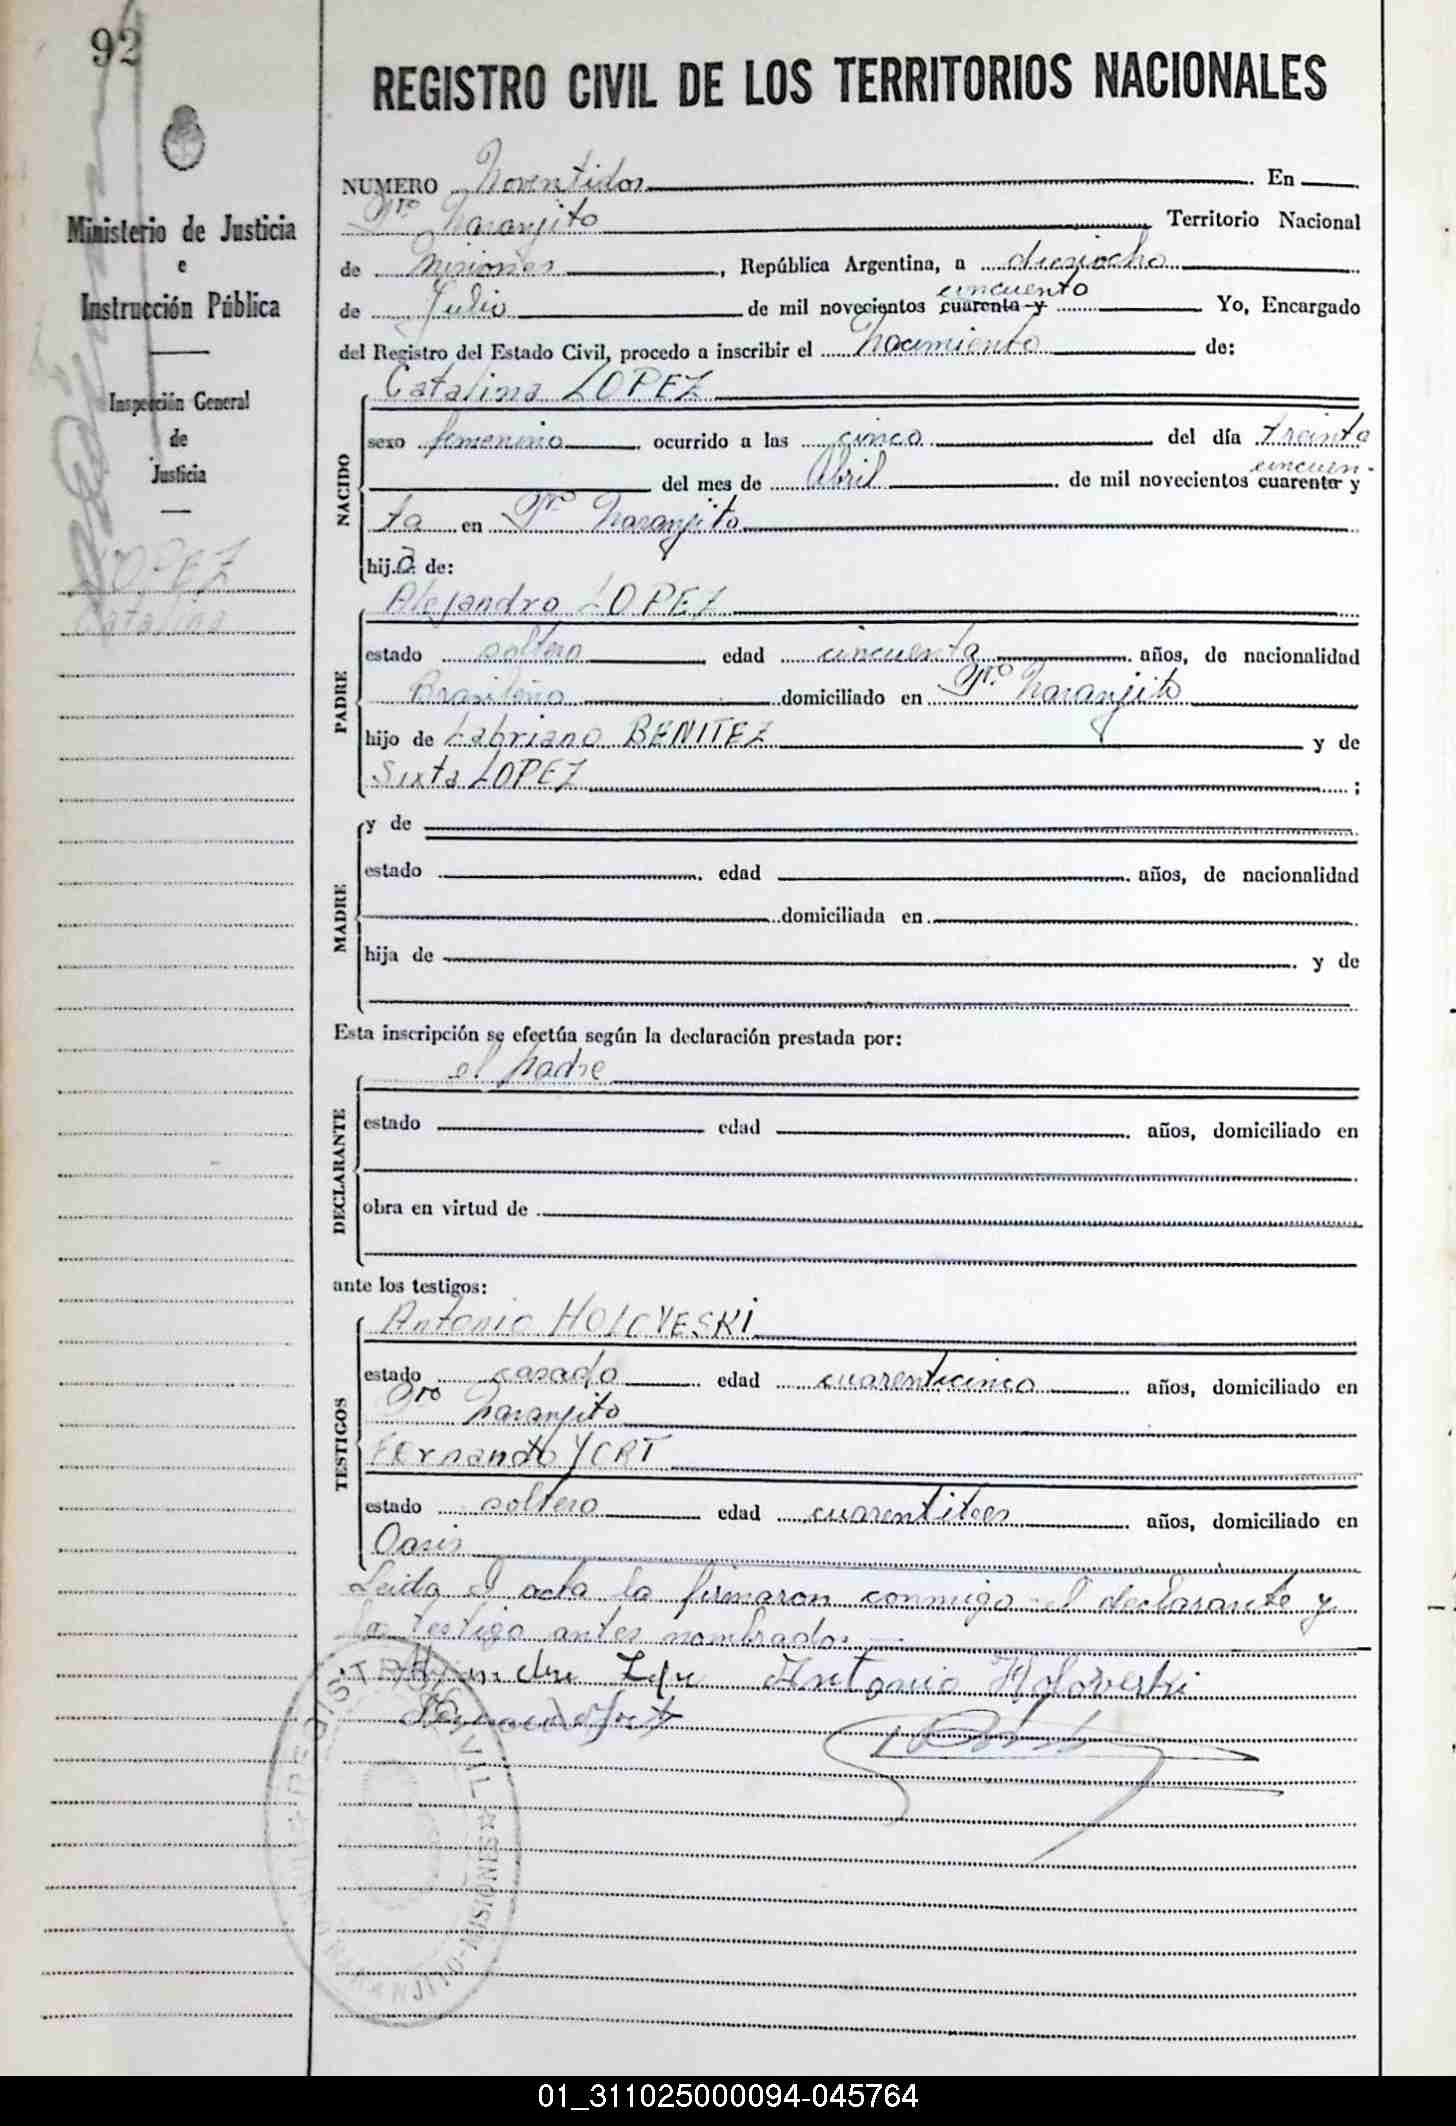 92
Ministerio de Justicia
e
Instrucción Pública
Inspección General
de
Justicia
LOPEZ
Catalina
REGISTRO CIVIL DE LOS TERRITORIOS NACIONALES
NUMERO Noventidos En
Pto Naranjito Territorio Nacional
de Misiones, República Argentina, a dieziocho
de Julio de mil novecientos cuarenta y cincuenta Yo, Encargado
del Registro del Estado Civil, procedo a inscribir el Nacimiento de:
NACIDO
Catalina LOPEZ
sexo femenino ocurrido a las cinco del día treinta
del mes de Abril de mil novecientos cuarenta y cincuen-
ta en Pto Naranjito
hija de:
PADRE
Alejandro LOPEZ
estado soltero edad cincuenta años, de nacionalidad
Brasileño domiciliado en Pto Naranjito
hijo de Labriano BENITEZ y de
Sixta LOPEZ ;
MADRE
y de
estado edad años, de nacionalidad
domiciliada en
hija de y de
Esta inscripción se efectúa según la declaración prestada por:
DECLARANTE
el padre
estado edad años, domiciliado en
obra en virtud de
ante los testigos:
TESTIGOS
Antonio HOLOVESKI
estado casado edad cuarenticinco años, domiciliado en
Pto Naranjito
Fernando YORT
estado soltero edad cuarentitres años, domiciliado en
Oasis
Leida el acta la firmaron conmigo el declarante y
los testigo antes nombrados
Antonio Holoveski
REGISTRO CIVIL
NARANJITO-MISIONES
01_311025000094-045764